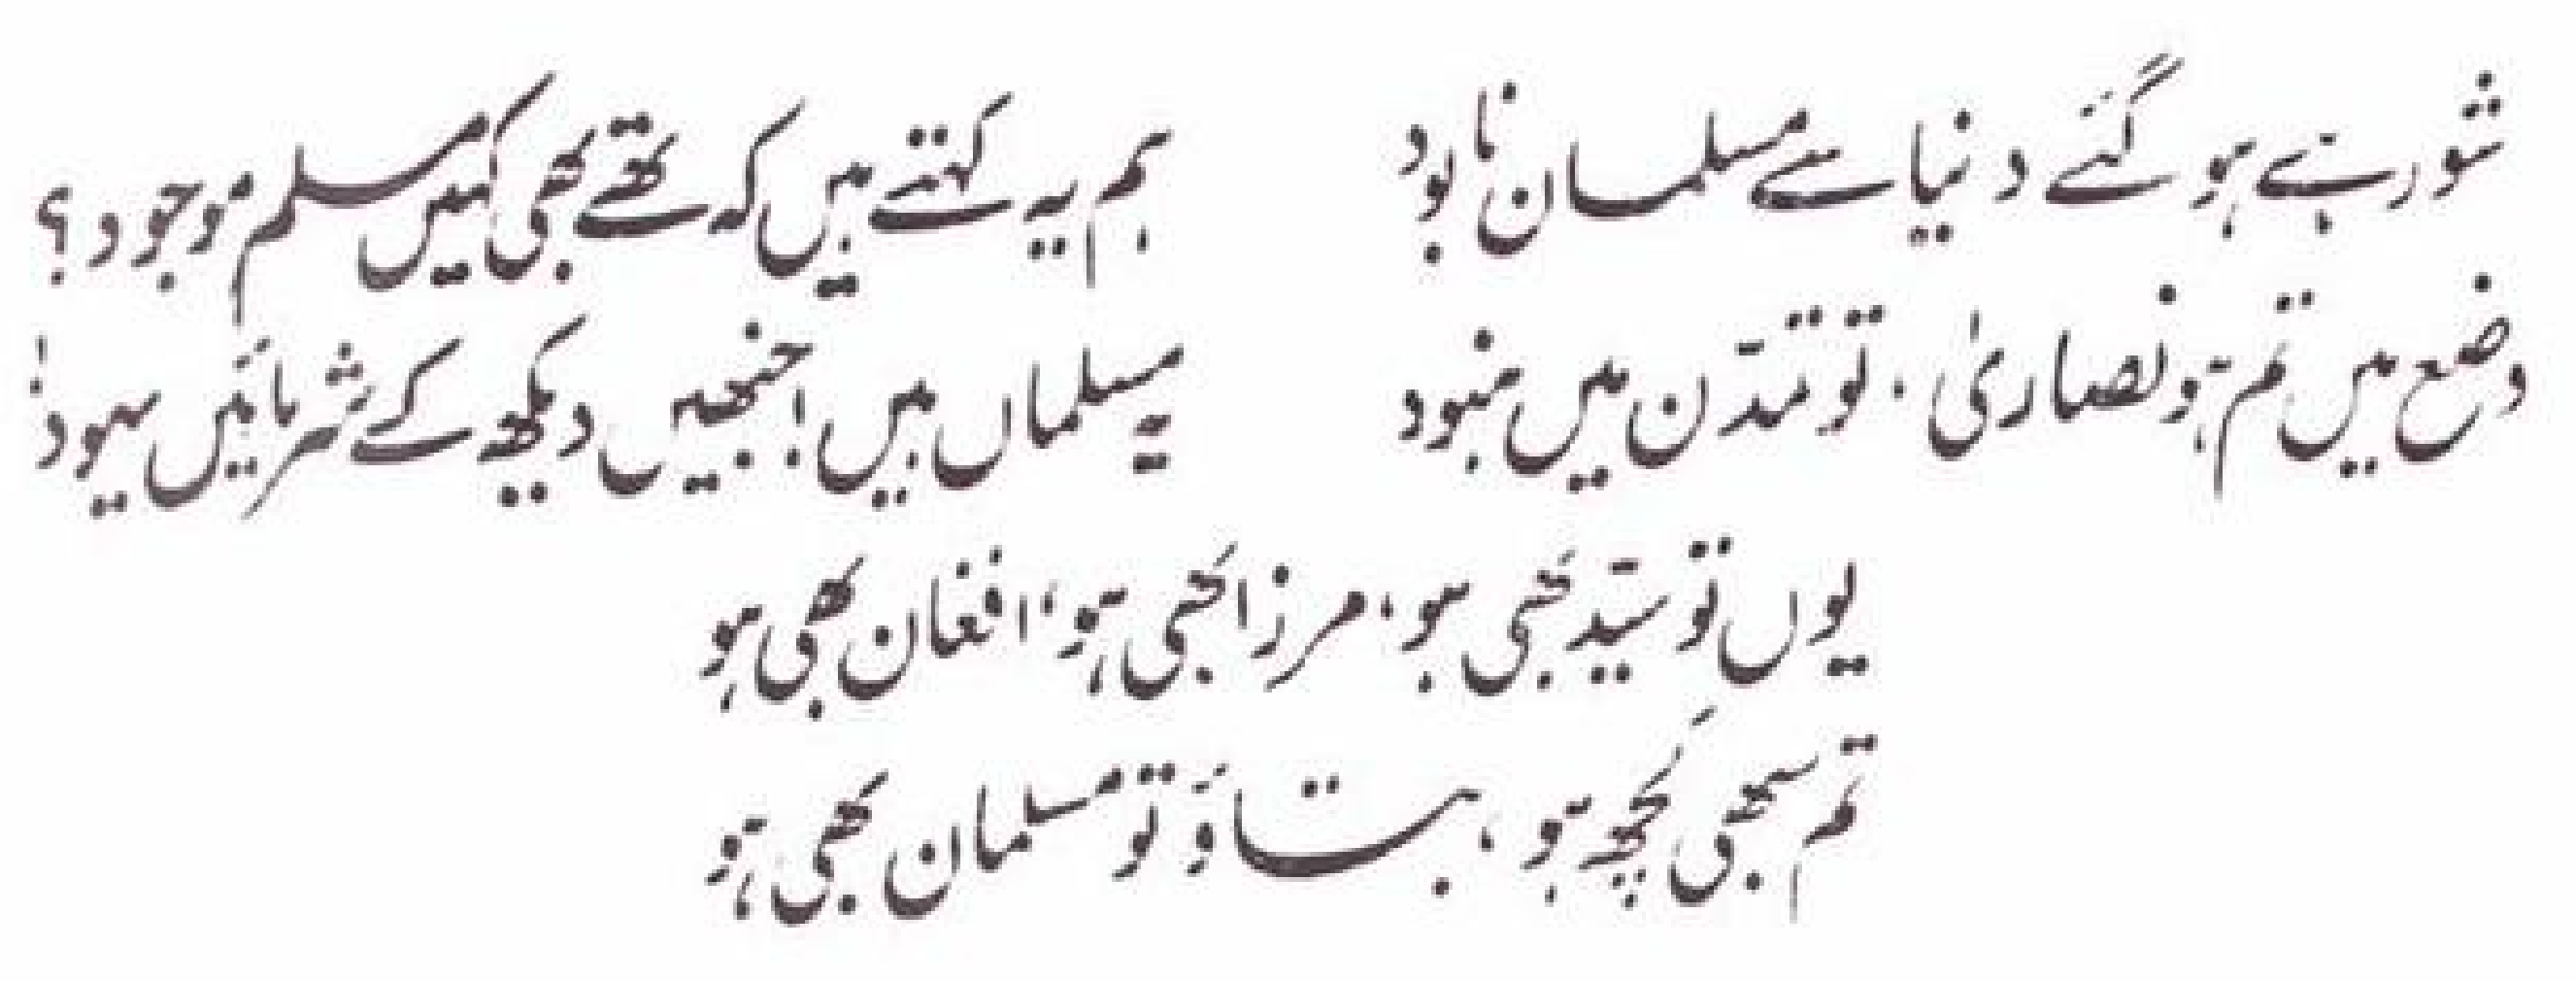 شور ہے ہو گئے دنیا سے مسلمان نابود
ہم یہ کہتے ہیں کہ تھے بھی کہیں مسلم موجود؟
وضع میں تم ہو نصاریٰ، تو تمدّن میں ہنود
یہ مسلماں ہیں! جنھیں دیکھ کے شرمائیں یہود!
یوں تو سیّد بھی ہو، مرزا بھی ہو، افغان بھی ہو
تم سبھی کچھ ہو، بتاؤ تو مسلمان بھی ہو